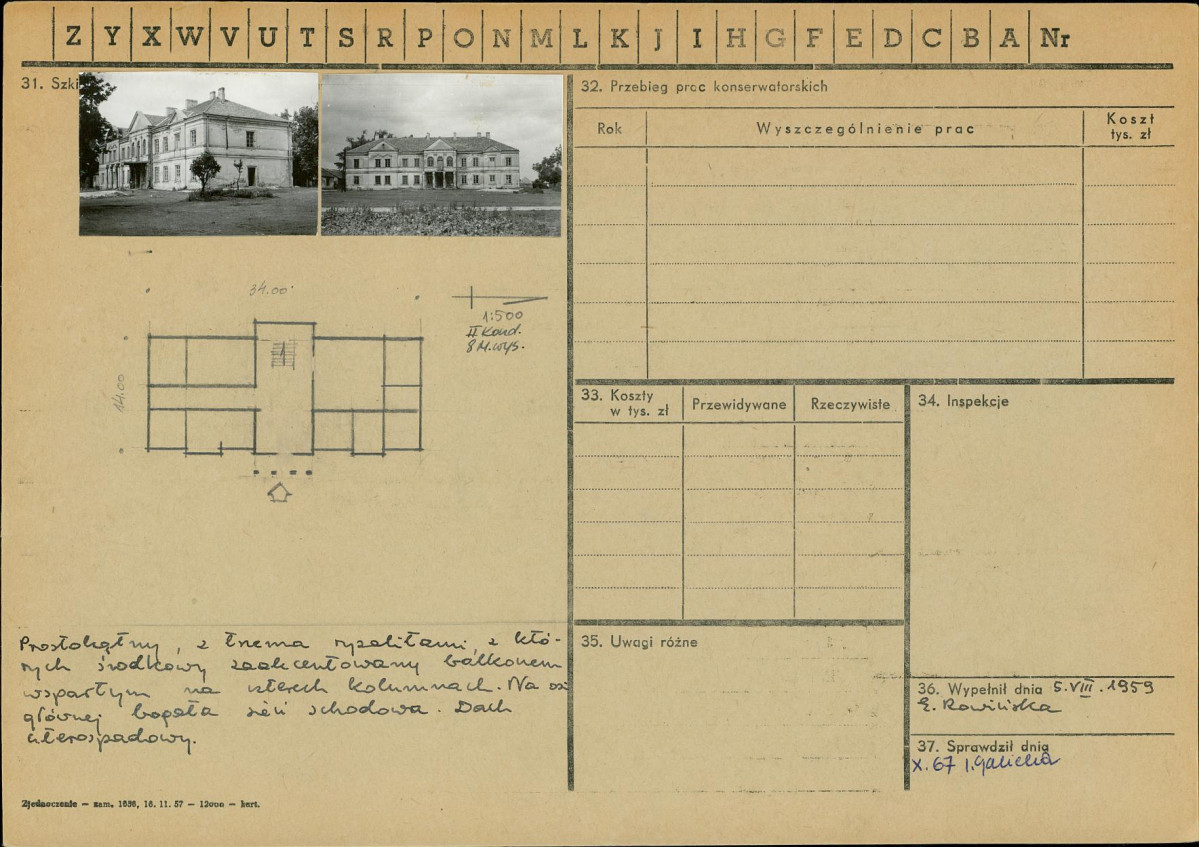 Z Y X W V U T S R P O N M L K J I H G F E D C B A Nr
31. Szki
34.00
14.00
1:500
II Kond.
8 M. wys.
Prostokątny, z trzema ryzalitami, z któ-
rych środkowy zaakcentowany balkonem
wspartym na czterech kolumnach. Na osi
głównej bogata sień schodowa. Dach
czterospadowy.
Zjednoczenie — zam. 1656, 16. 11. 57 — 12000 — kart.
32. Przebieg prac konserwatorskich
Rok
Wyszczególnienie prac
Koszt
tys. zł
33. Koszty
w tys. zł
Przewidywane
Rzeczywiste
34. Inspekcje
35. Uwagi różne
36. Wypełnił dnia 5.VIII.1959
E. Rowińska
37. Sprawdził dnia
X. 67 I. Galicka